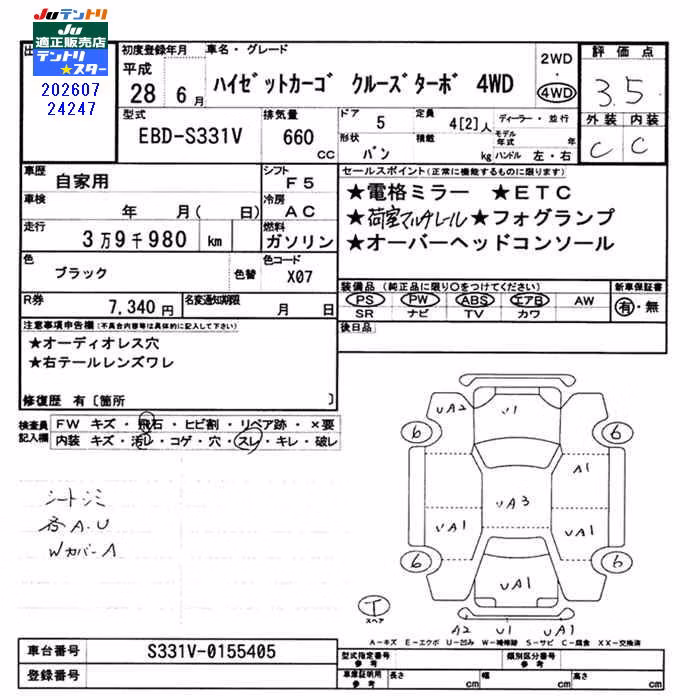 Juテントリ
Ju
適正販売店
テントリ
★スター
202607
24247
出
初度登録年月
車名・グレード
平成
28 6月
ハイゼットカーゴ クルーズターボ 4WD
2WD
・
4WD
評価点
3.5
外装 内装
C C
型式
EBD-S331V
排気量
660
cc
ドア
5
形状
バン
定員
4[2]人
積載
kg
ディーラー・並行
モデル
年式 年
ハンドル 左・右
車歴
自家用
シフト
F5
車検
年 月( 日)
冷房
AC
走行
3万9千980 km
燃料
ガソリン
色
ブラック
色替
色コード
X07
R券
7,340円
名変通知期限
月 日
セールスポイント(正常に機能するものに限ります)
★電格ミラー ★ETC
★荷室マルチレール★フォグランプ
★オーバーヘッドコンソール
装備品(純正品に限り○をつけてください)
新車保証書
PS PW ABS エアB AW
SR ナビ TV カワ
有・無
後日品
注意事項申告欄(不具合内容等は具体的に記入して下さい)
★オーディオレス穴
★右テールレンズワレ
修復歴 有〔箇所 〕
検査員
記入欄
FW キズ・飛石・ヒビ割・リペア跡・×要
内装 キズ・汚レ・コゲ・穴・スレ・キレ・破レ
シートシミ
各A.U
WカバーA
UA2
U1
6
6
A1
UA3
UA1
UA1
6
6
UA1
T
スペア
A2 U1 UA1
A-キズ E-エクボ U-凹み W-補修跡 S-サビ C-腐食 XX-交換済
車台番号
S331V-0155405
登録番号
型式指定番号
参考
類別区分番号
参考
車庫証明用
参考
長さ cm
幅 cm
高さ cm